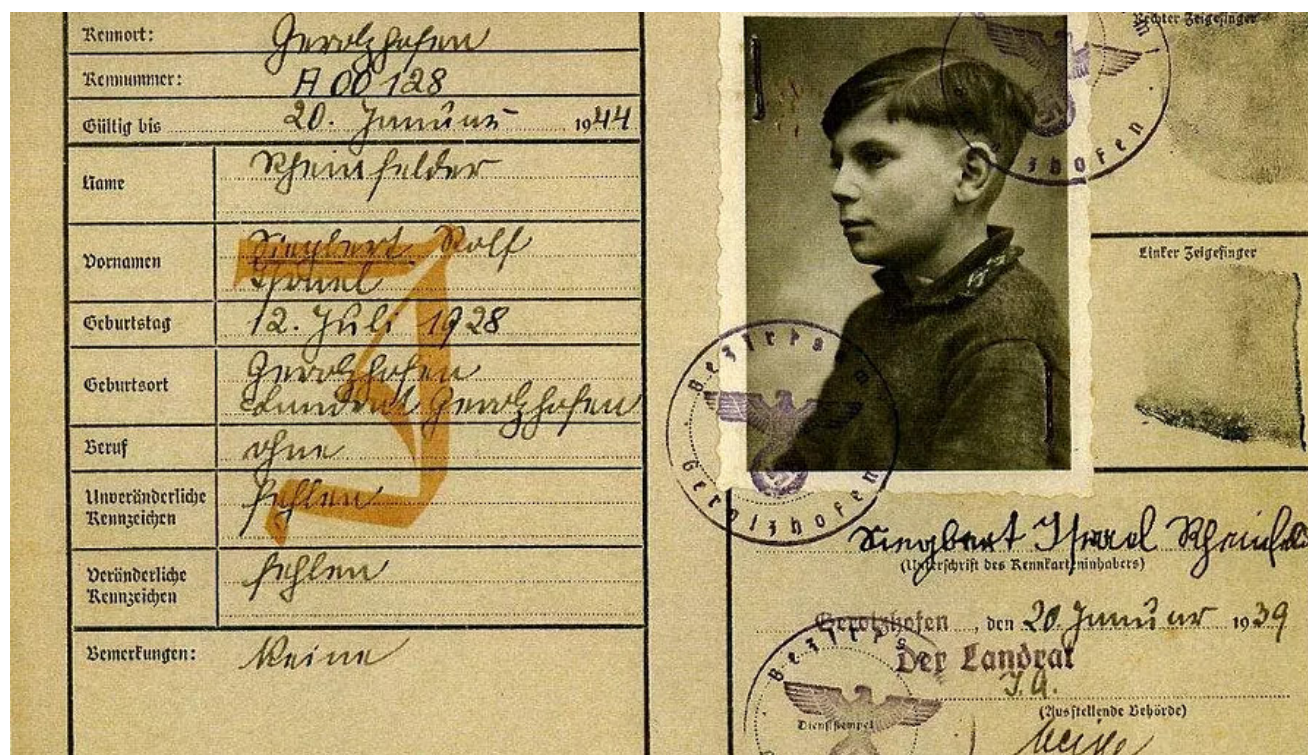 Kennort: Gerolzhofen
Kennummer: A 00 128
Gültig bis 20. Januar 1944
Name Rheinfelder
Vornamen Siegbert Rolf
Israel
Geburtstag 12. Juli 1928
Geburtsort Gerolzhofen
Landrat Gerolzhofen
Beruf ohne
Unveränderliche
Kennzeichen fehlen
Veränderliche
Kennzeichen fehlen
Bemerkungen: Keine
J
Rechter Zeigefinger
Linker Zeigefinger
Bezirksam
Gerolzhofen
Siegbert Israel Rheinfeld
(Unterschrift des Kennkarteninhabers)
Gerolzhofen, den 20. Januar 1939
Der Landrat
I.A.
(Ausstellende Behörde)
Bezirks
Dienststempel